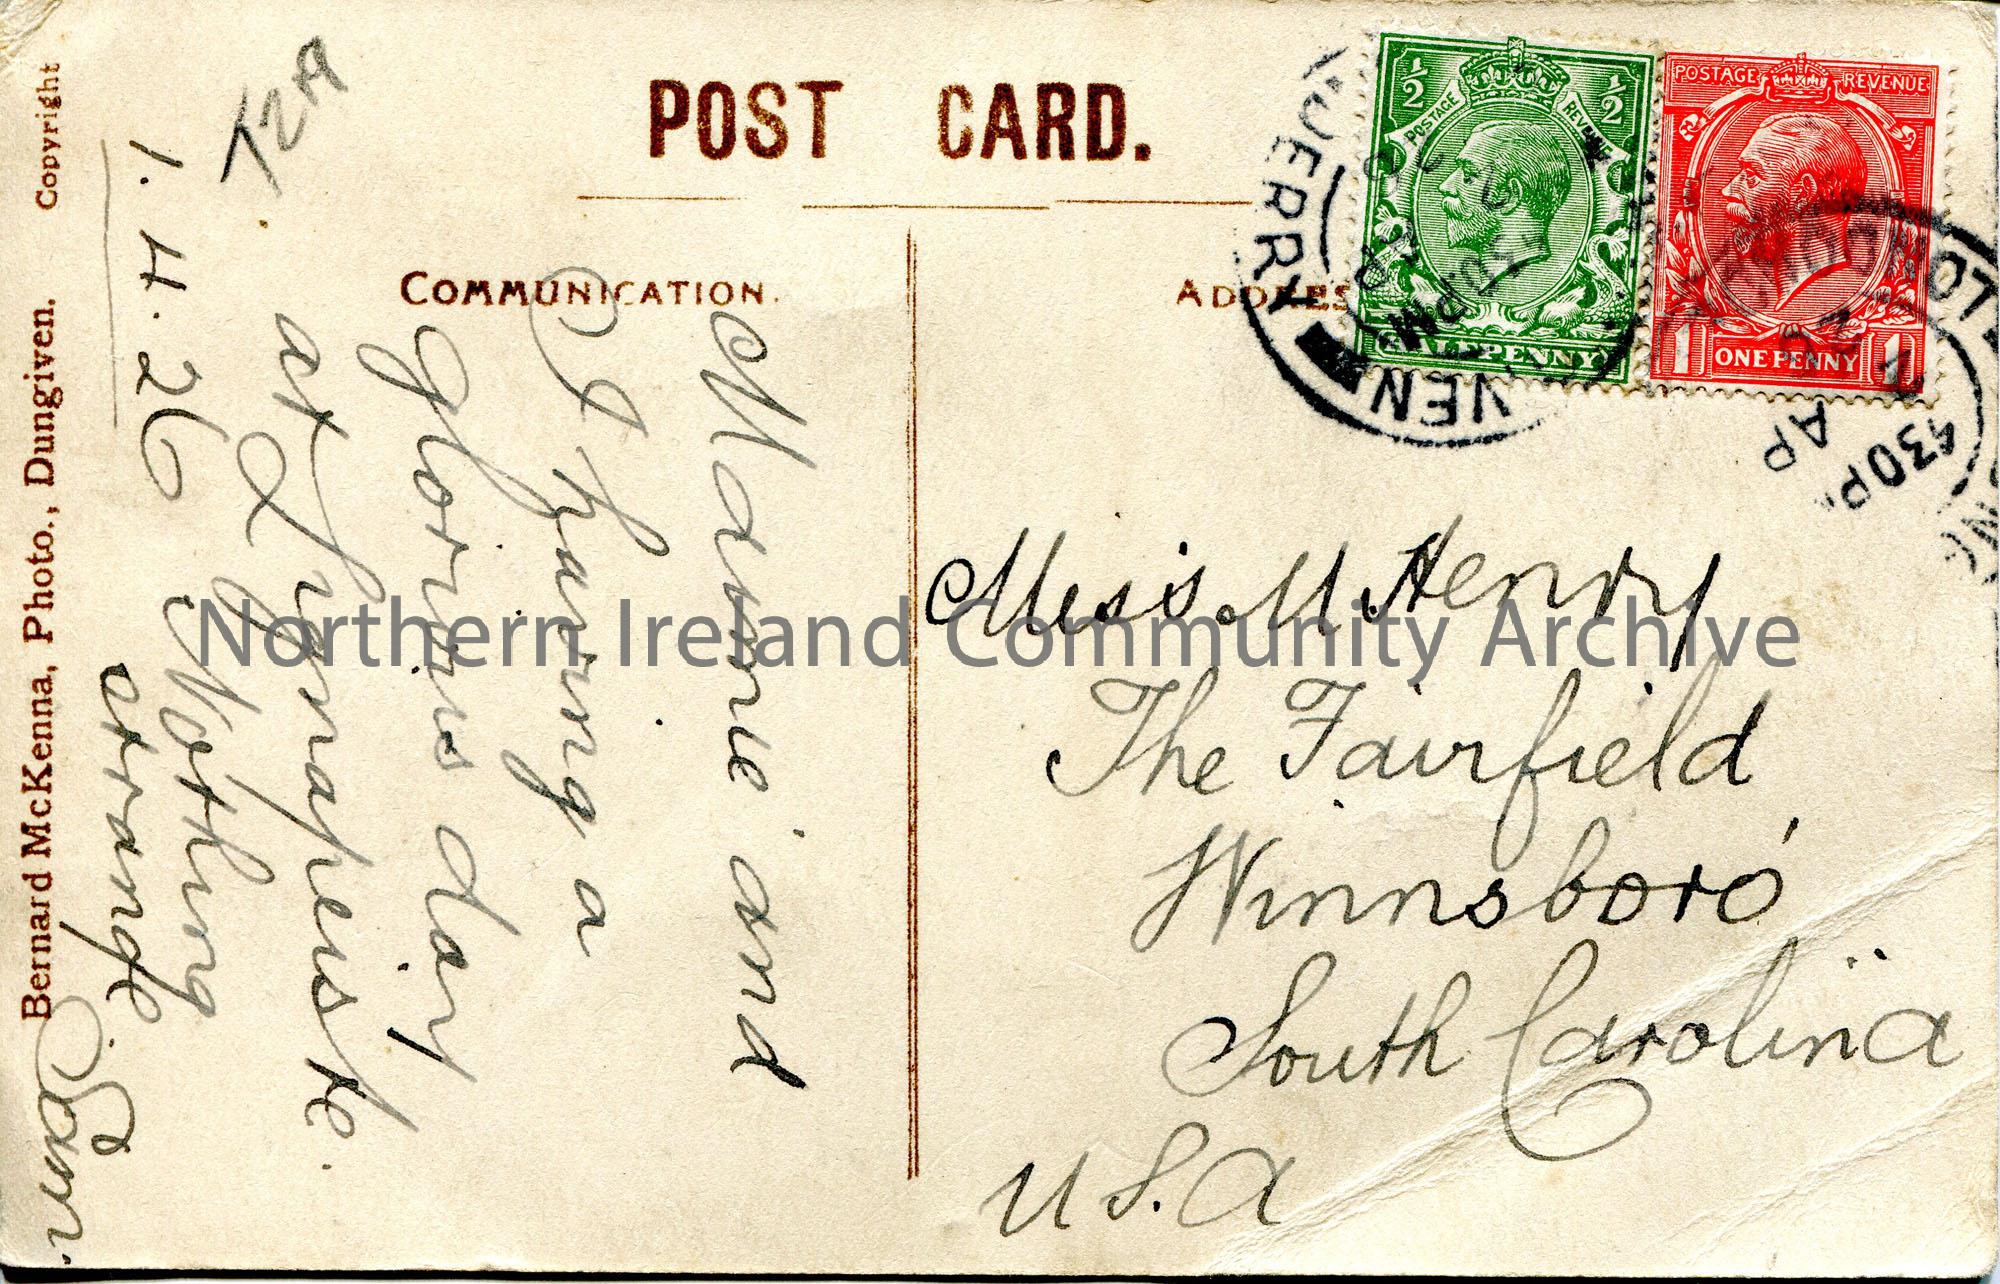 POST CARD.
COMMUNICATION.
Mamie and
I having a
glorious day
at Lignapeiste.
Nothing
strange
Sam.
1.4.26
Bernard McKenna, Photo., Dungiven. Copyright
ADDRES
½ ½
POSTAGE REVENUE
HALFPENNY
POSTAGE REVENUE
1 ONE PENNY 1
DERRY
VEN
PM
LONDON
430P
AP
Miss. M. Henry
The Fairfield
Winnsboro
South Carolina
U S. A
Northern Ireland Community Archive